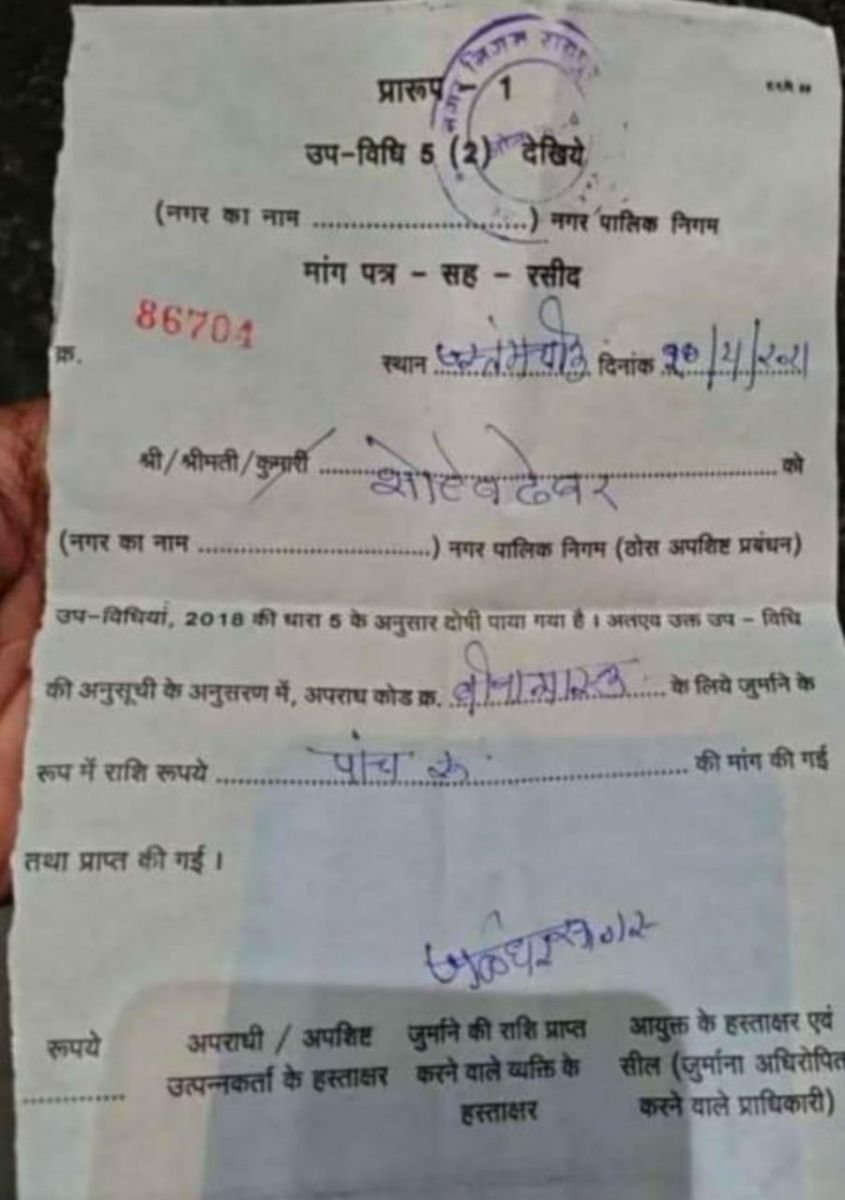 नगर निगम रायपुर
प्रारूप - 1
उप-विधि 5 (2) देखिये
(नगर का नाम ..............................) नगर पालिक निगम
मांग पत्र - सह - रसीद
86704
क्र. स्थान दिनांक
श्री/श्रीमती/कुमारी को
(नगर का नाम ..............................) नगर पालिक निगम (ठोस अपशिष्ट प्रबंधन)
उप-विधियां, 2018 की धारा 5 के अनुसार दोषी पाया गया है। अतएव उक्त उप - विधि
की अनुसूची के अनुसरण में, अपराध कोड क्र. के लिये जुर्माने के
रूप में राशि रूपये पांच रू की मांग की गई
तथा प्राप्त की गई ।
रूपये अपराधी / अपशिष्ट जुर्माने की राशि प्राप्त आयुक्त के हस्ताक्षर एवं
............... उत्पन्नकर्ता के हस्ताक्षर करने वाले व्यक्ति के सील (जुर्माना अधिरोपित
हस्ताक्षर करने वाले प्राधिकारी)